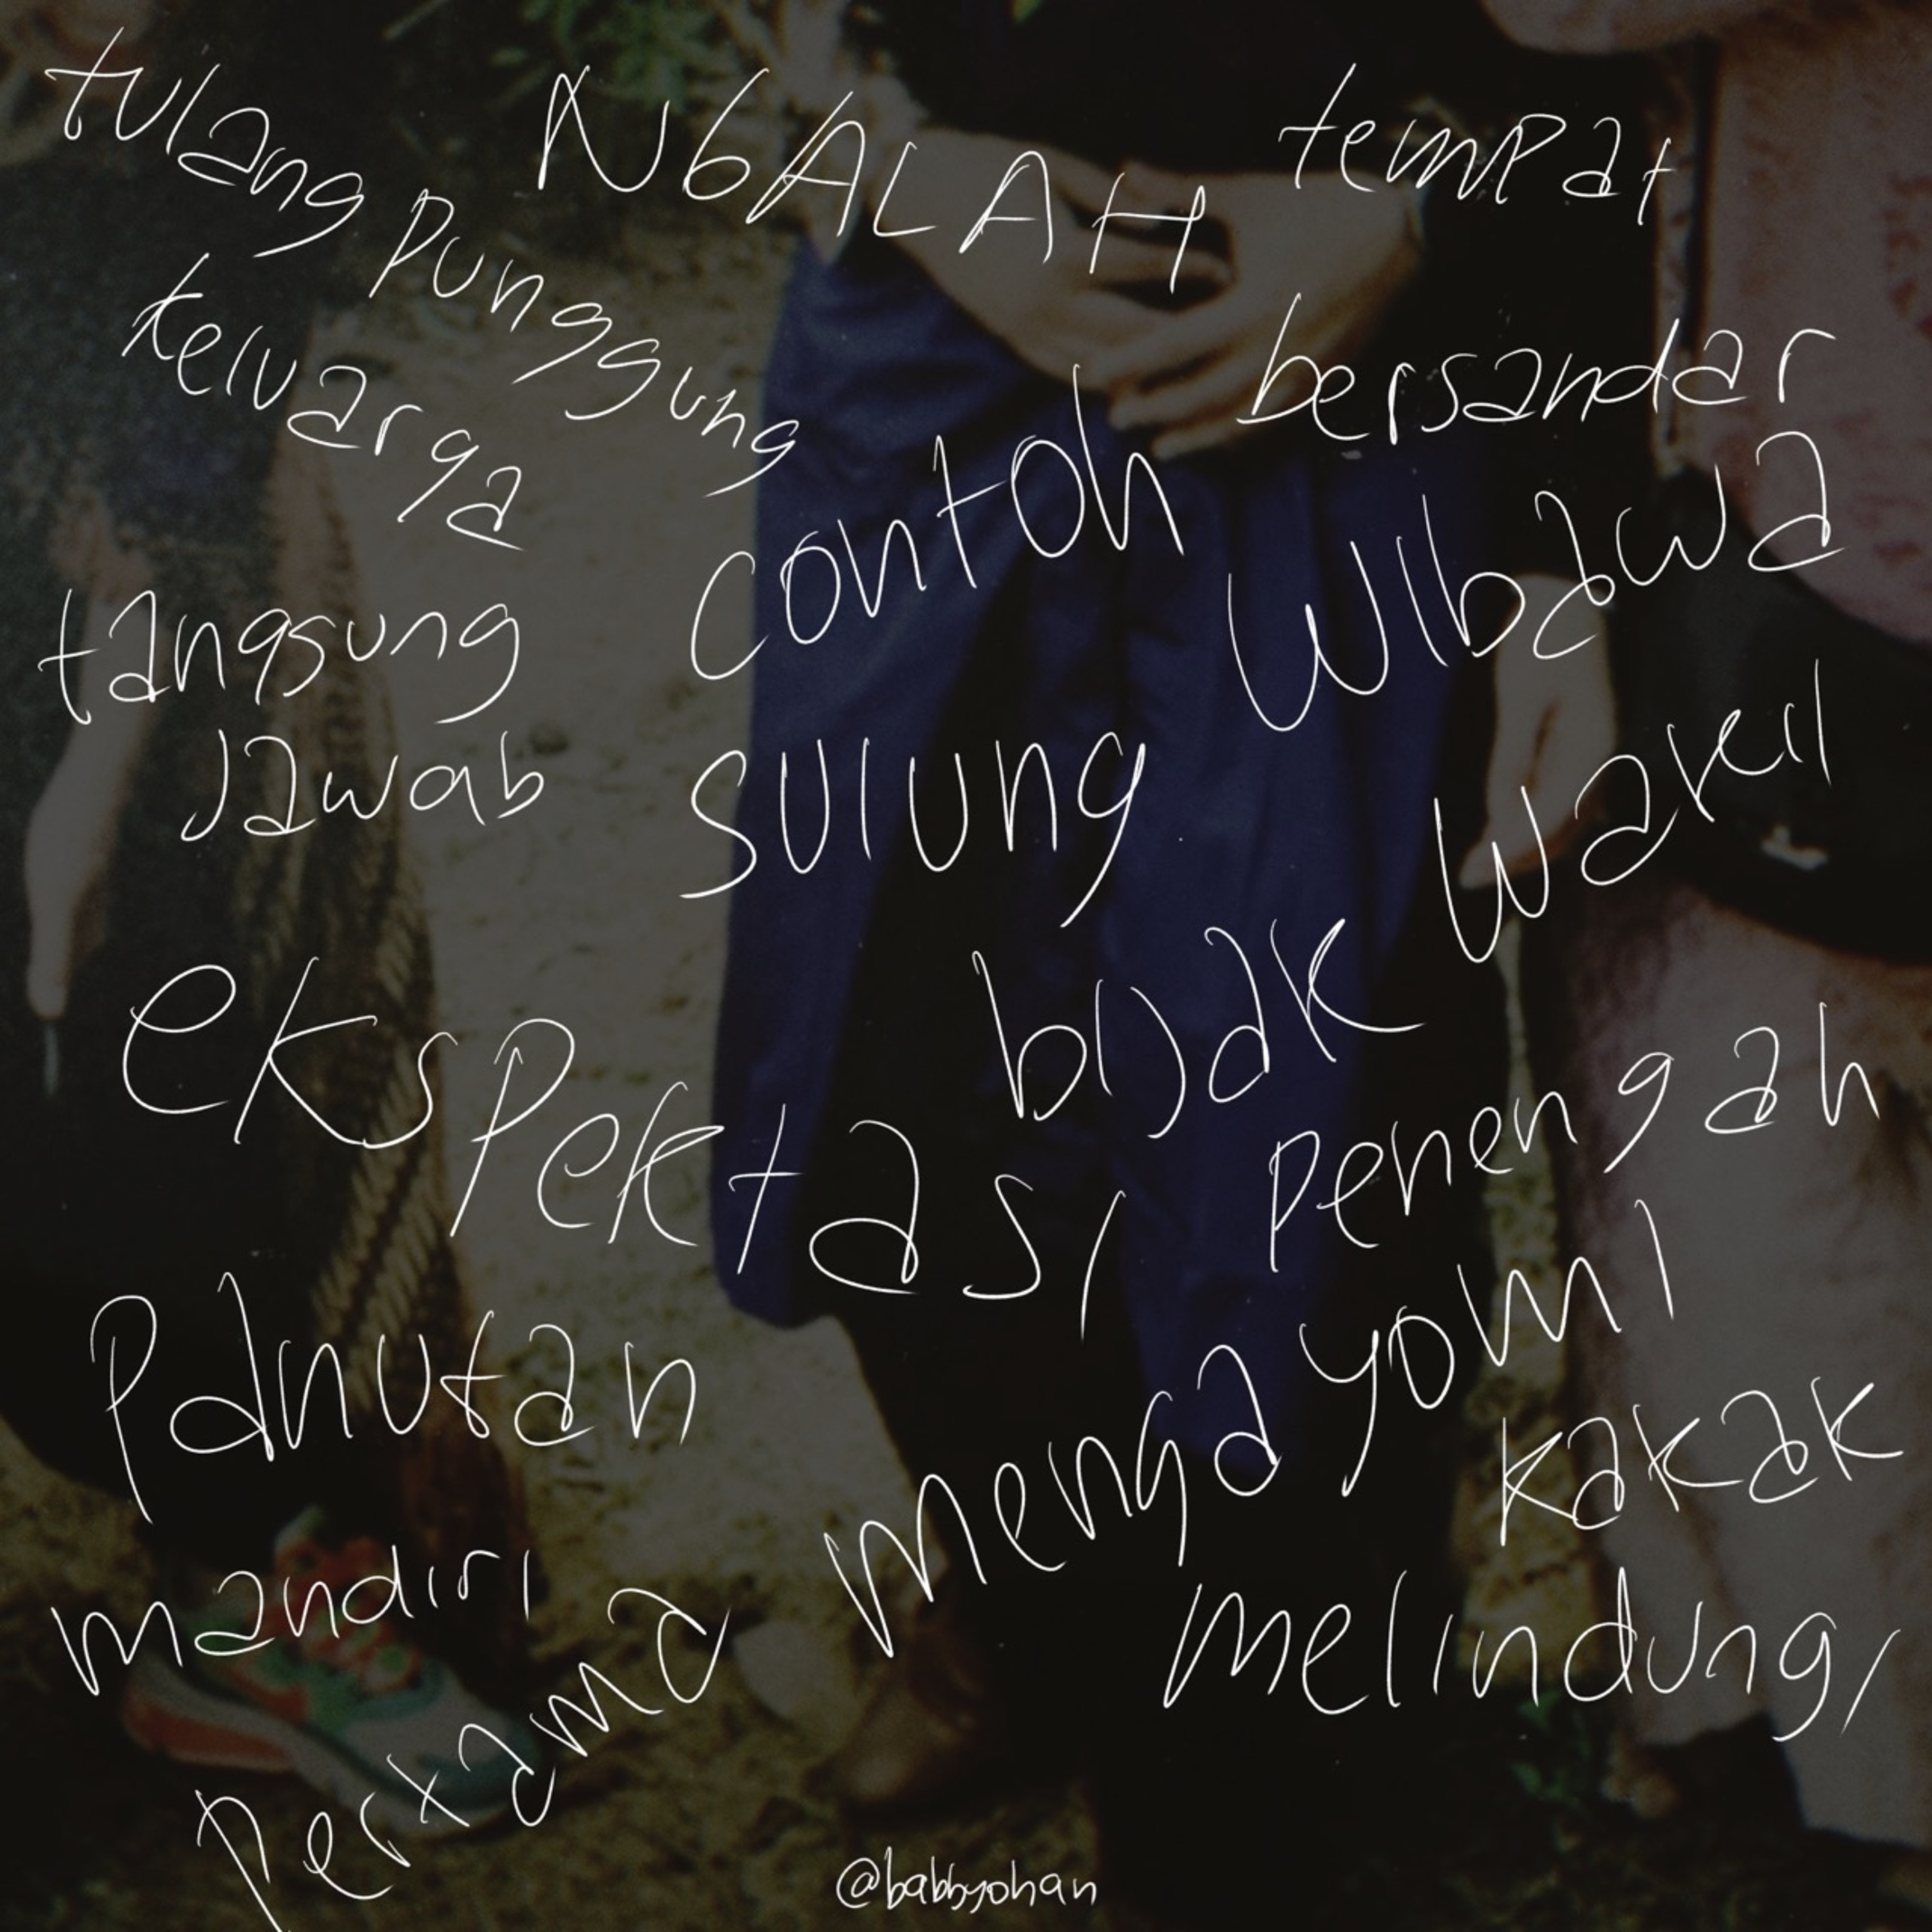 tulang punggung
keluarga
NGALAH
tempat
bersandar
contoh
wibawa
tangsung
jawab
sulung
wakil
ekspektasi
bijak
penengah
panutan
mengayomi
kakak
mandiri
melindungi
pertama
@babbyohan